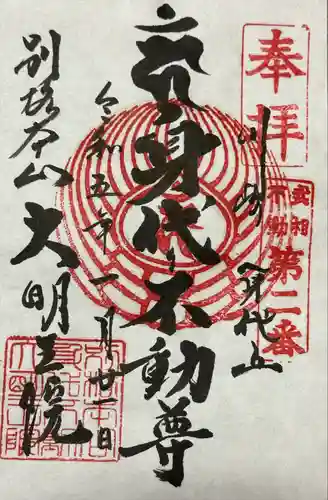 奉拝
武相不動
第二番
川崎
身代山
身代り不動尊
令和五年一月廿一日
別格本山
大明王院